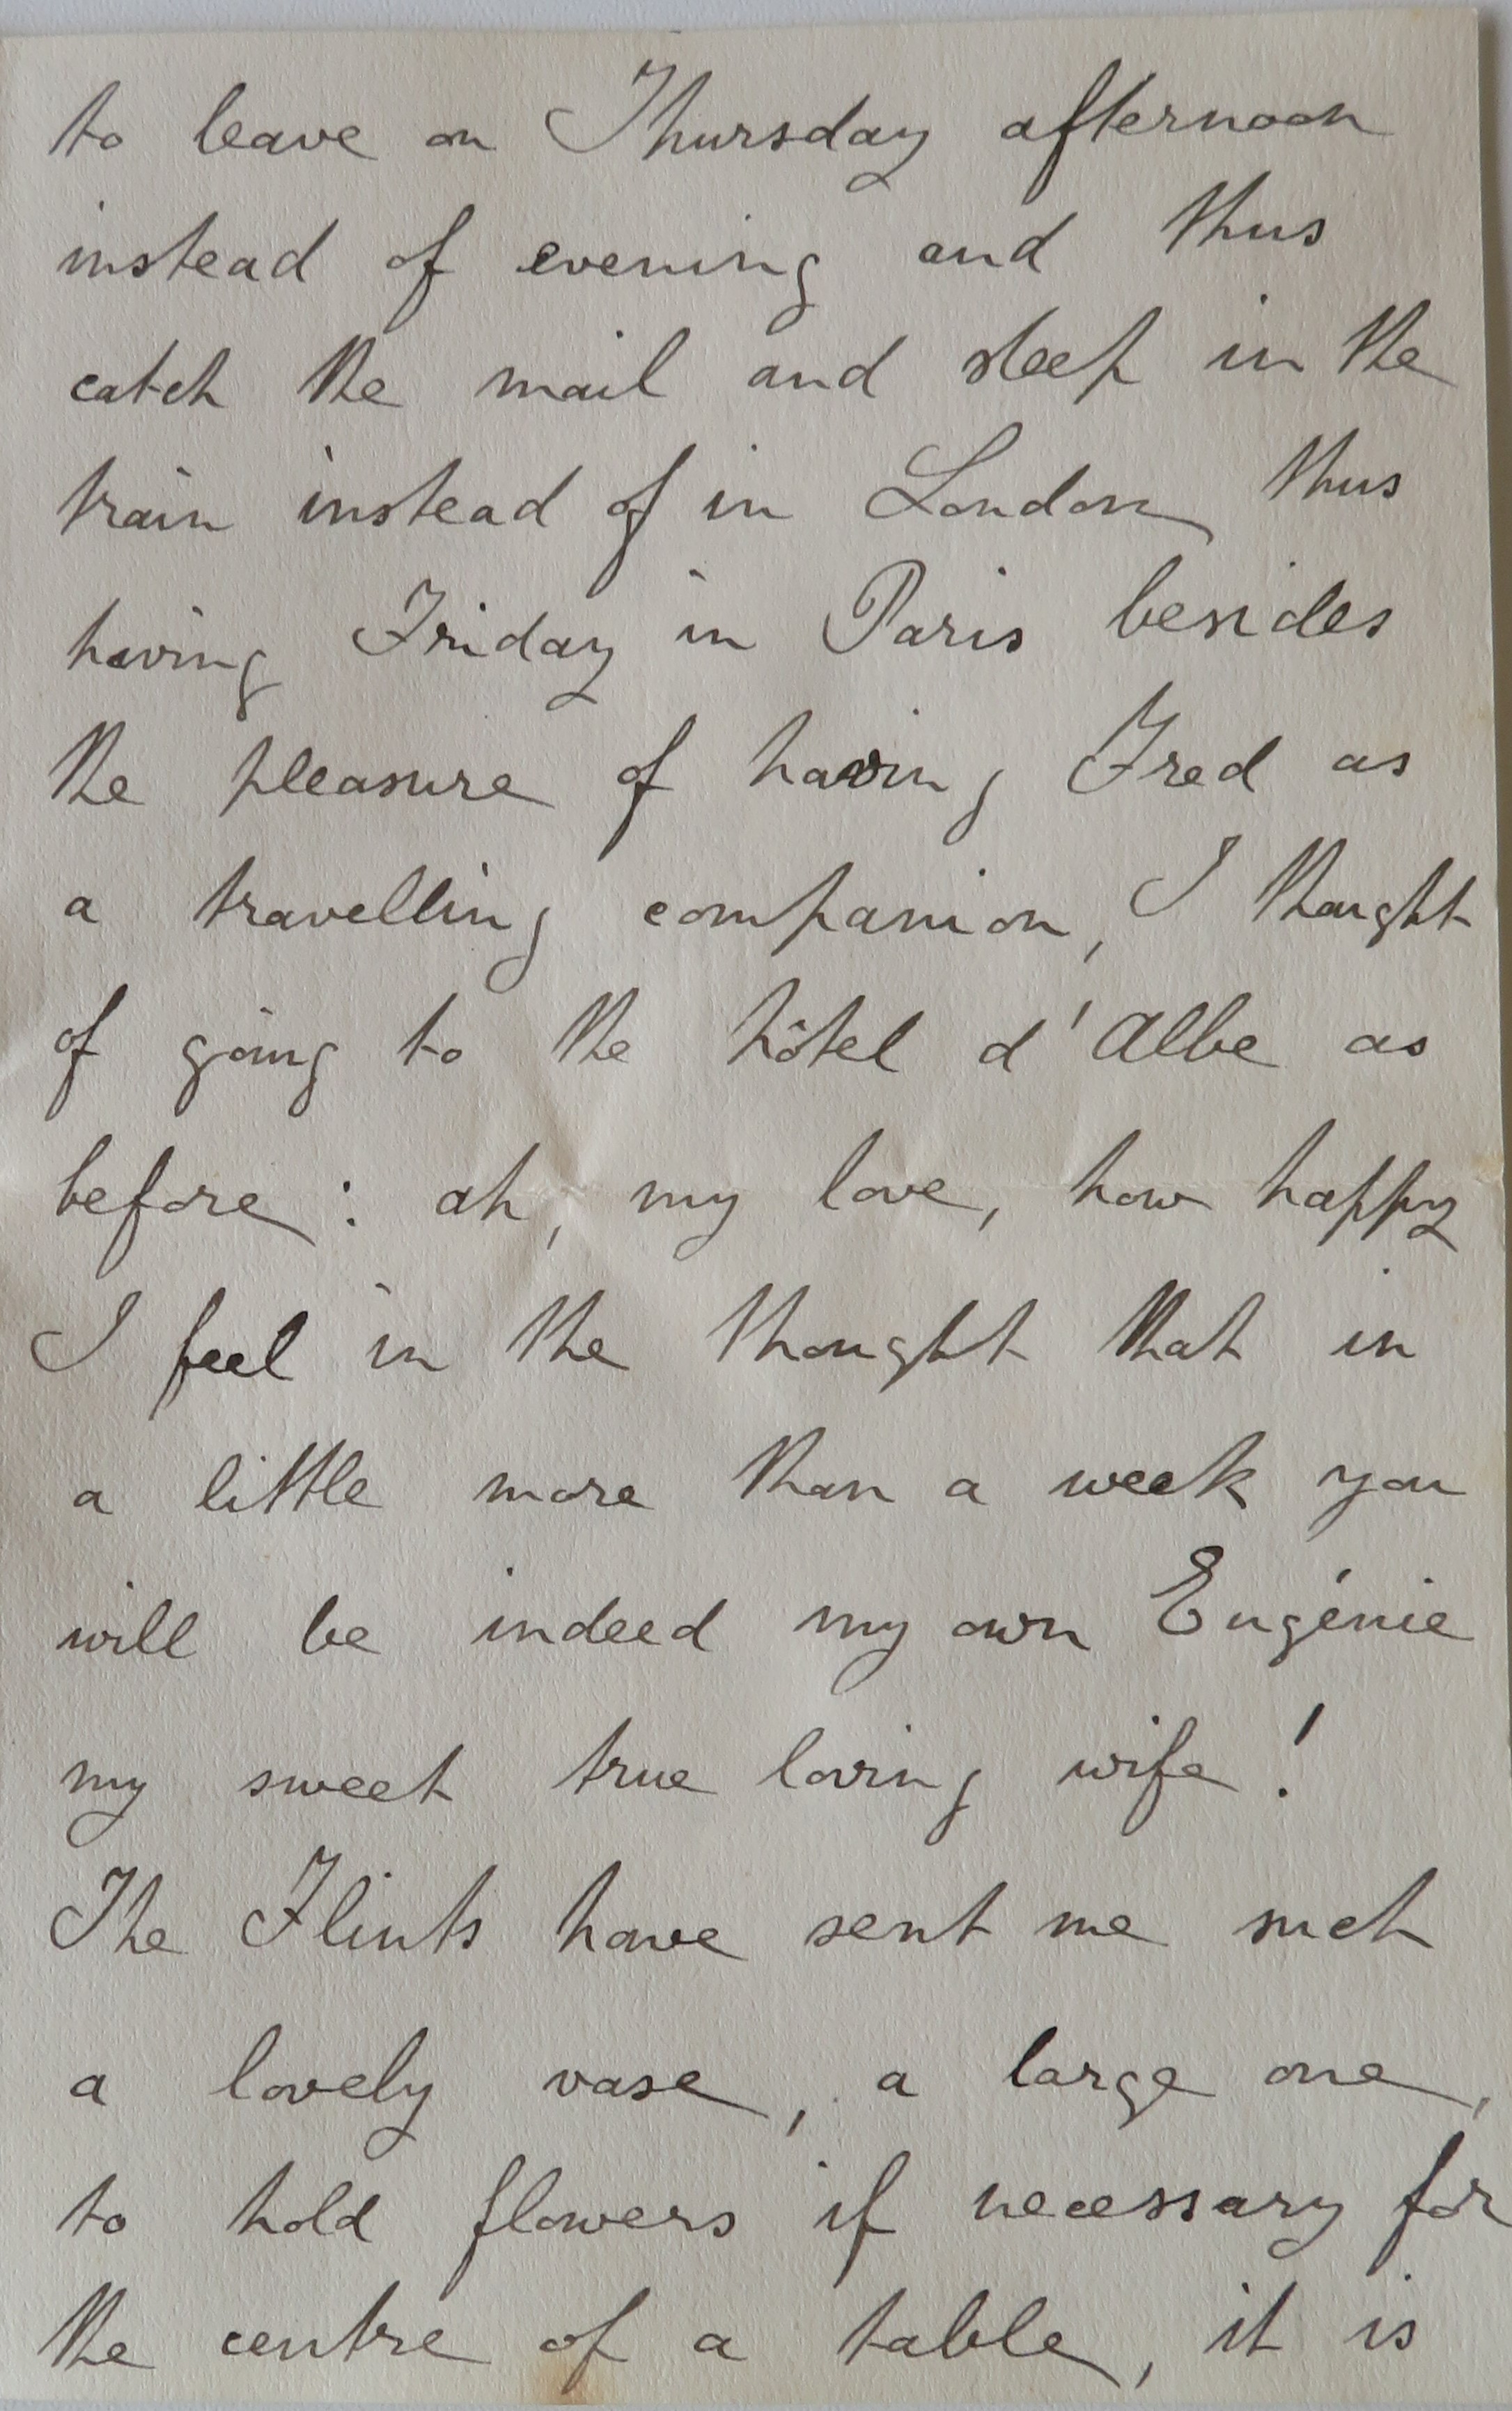 to leave on Thursday afternoon
instead of evening and thus
catch the mail and sleep in the
train instead of in London thus
having Friday in Paris besides
the pleasure of having Fred as
a travelling companion, I thought
of going to the hôtel d'Albe as
before : ah, my love, how happy
I feel in the thought that in
a little more than a week you
will be indeed my own Eugénie
my sweet true loving wife !
The Flints have sent me such
a lovely vase, a large one,
to hold flowers if necessary for
the centre of a table, it is